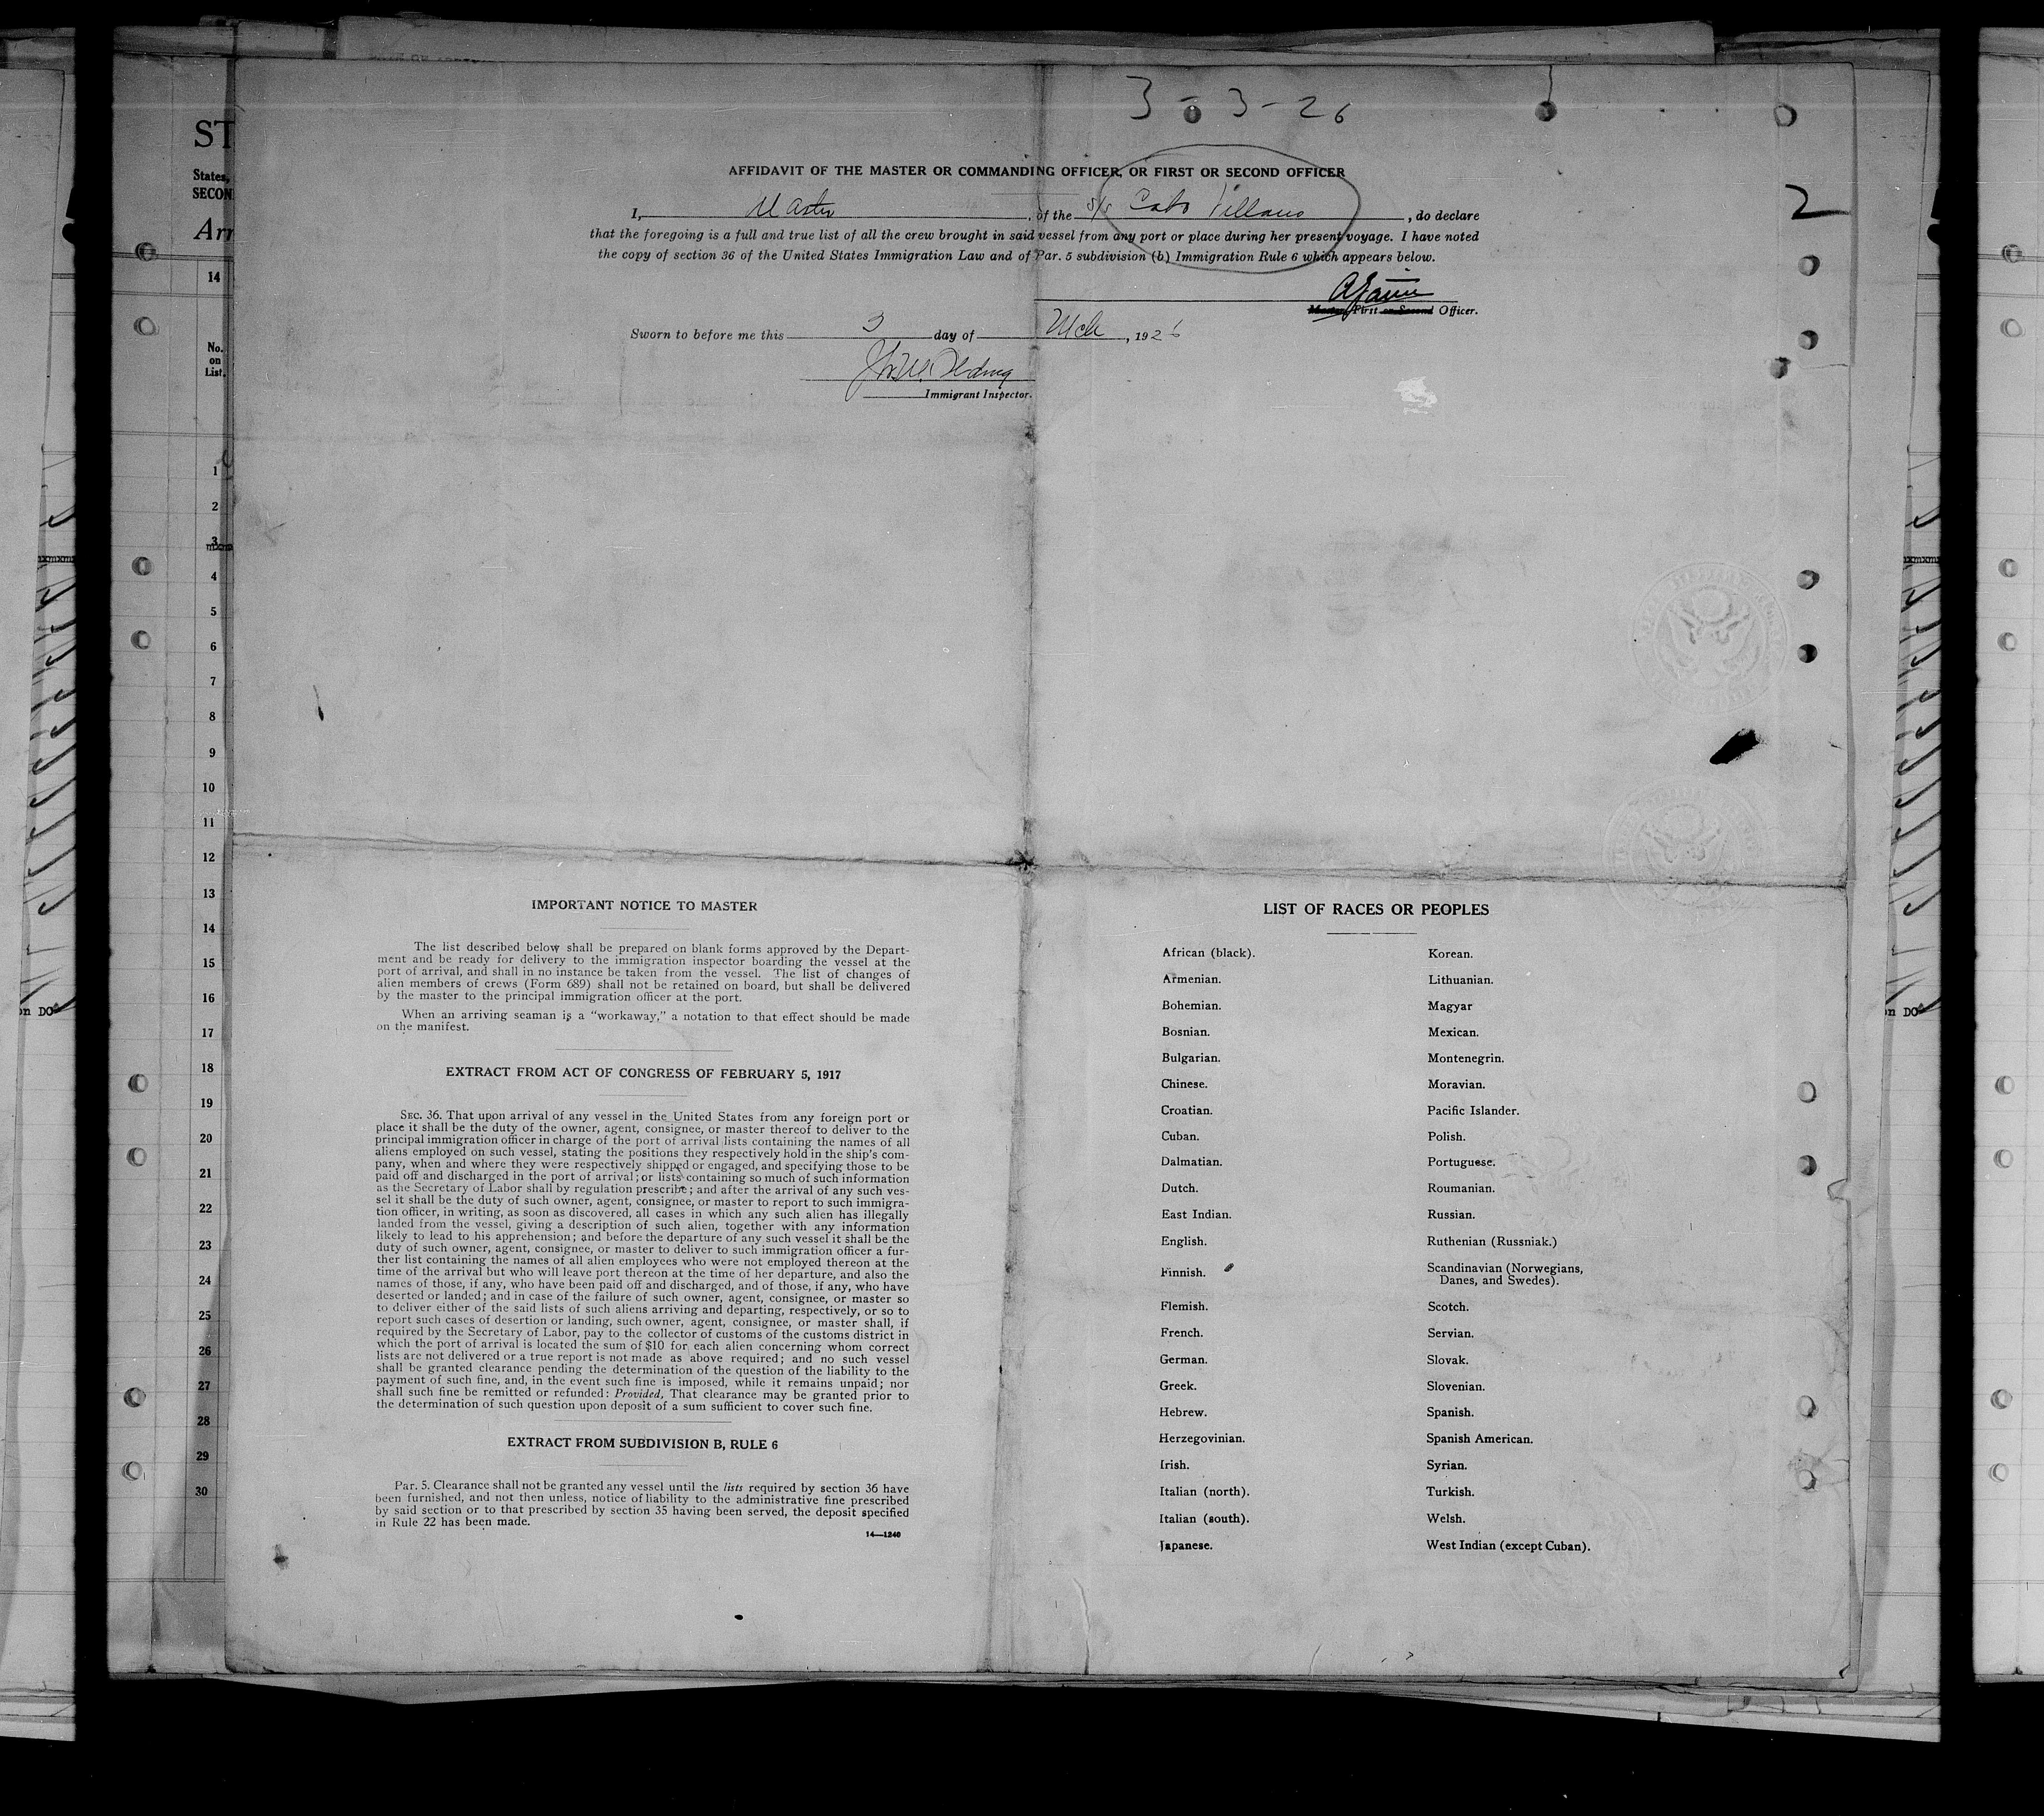 3-3-26
2
AFFIDAVIT OF THE MASTER OR COMMANDING OFFICER, OR FIRST OR SECOND OFFICER
I, Master, of the S/S Cabo Villano, do declare
that the foregoing is a full and true list of all the crew brought in said vessel from any port or place during her present voyage. I have noted
the copy of section 36 of the United States Immigration Law and of Par. 5 subdivision (b) Immigration Rule 6 which appears below.
Master, First or Second Officer.
Sworn to before me this 3 day of Mch, 1926
Immigrant Inspector.
ST
States,
SECON
Arr
14
No.
on
List.
1
2
3
4
5
6
7
8
9
10
11
12
13
14
15
16
17
18
19
20
21
22
23
24
25
26
27
28
29
30
IMPORTANT NOTICE TO MASTER
The list described below shall be prepared on blank forms approved by the Depart-
ment and be ready for delivery to the immigration inspector boarding the vessel at the
port of arrival, and shall in no instance be taken from the vessel. The list of changes of
alien members of crews (Form 689) shall not be retained on board, but shall be delivered
by the master to the principal immigration officer at the port.
When an arriving seaman is a "workaway," a notation to that effect should be made
on the manifest.
EXTRACT FROM ACT OF CONGRESS OF FEBRUARY 5, 1917
SEC. 36. That upon arrival of any vessel in the United States from any foreign port or
place it shall be the duty of the owner, agent, consignee, or master thereof to deliver to the
principal immigration officer in charge of the port of arrival lists containing the names of all
aliens employed on such vessel, stating the positions they respectively hold in the ship's com-
pany, when and where they were respectively shipped or engaged, and specifying those to be
paid off and discharged in the port of arrival; or lists containing so much of such information
as the Secretary of Labor shall by regulation prescribe; and after the arrival of any such ves-
sel it shall be the duty of such owner, agent, consignee, or master to report to such immigra-
tion officer, in writing, as soon as discovered, all cases in which any such alien has illegally
landed from the vessel, giving a description of such alien, together with any information
likely to lead to his apprehension; and before the departure of any such vessel it shall be the
duty of such owner, agent, consignee, or master to deliver to such immigration officer a fur-
ther list containing the names of all alien employees who were not employed thereon at the
time of the arrival but who will leave port thereon at the time of her departure, and also the
names of those, if any, who have been paid off and discharged, and of those, if any, who have
deserted or landed; and in case of the failure of such owner, agent, consignee, or master so
to deliver either of the said lists of such aliens arriving and departing, respectively, or so to
report such cases of desertion or landing, such owner, agent, consignee, or master shall, if
required by the Secretary of Labor, pay to the collector of customs of the customs district in
which the port of arrival is located the sum of $10 for each alien concerning whom correct
lists are not delivered or a true report is not made as above required; and no such vessel
shall be granted clearance pending the determination of the question of the liability to the
payment of such fine, and, in the event such fine is imposed, while it remains unpaid; nor
shall such fine be remitted or refunded: Provided, That clearance may be granted prior to
the determination of such question upon deposit of a sum sufficient to cover such fine.
EXTRACT FROM SUBDIVISION B, RULE 6
Par. 5. Clearance shall not be granted any vessel until the lists required by section 36 have
been furnished, and not then unless, notice of liability to the administrative fine prescribed
by said section or to that prescribed by section 35 having been served, the deposit specified
in Rule 22 has been made.
14—1240
LIST OF RACES OR PEOPLES
African (black).
Armenian.
Bohemian.
Bosnian.
Bulgarian.
Chinese.
Croatian.
Cuban.
Dalmatian.
Dutch.
East Indian.
English.
Finnish.
Flemish.
French.
German.
Greek.
Hebrew.
Herzegovinian.
Irish.
Italian (north).
Italian (south).
Japanese.
Korean.
Lithuanian.
Magyar
Mexican.
Montenegrin.
Moravian.
Pacific Islander.
Polish.
Portuguese.
Roumanian.
Russian.
Ruthenian (Russniak.)
Scandinavian (Norwegians,
Danes, and Swedes).
Scotch.
Servian.
Slovak.
Slovenian.
Spanish.
Spanish American.
Syrian.
Turkish.
Welsh.
West Indian (except Cuban).